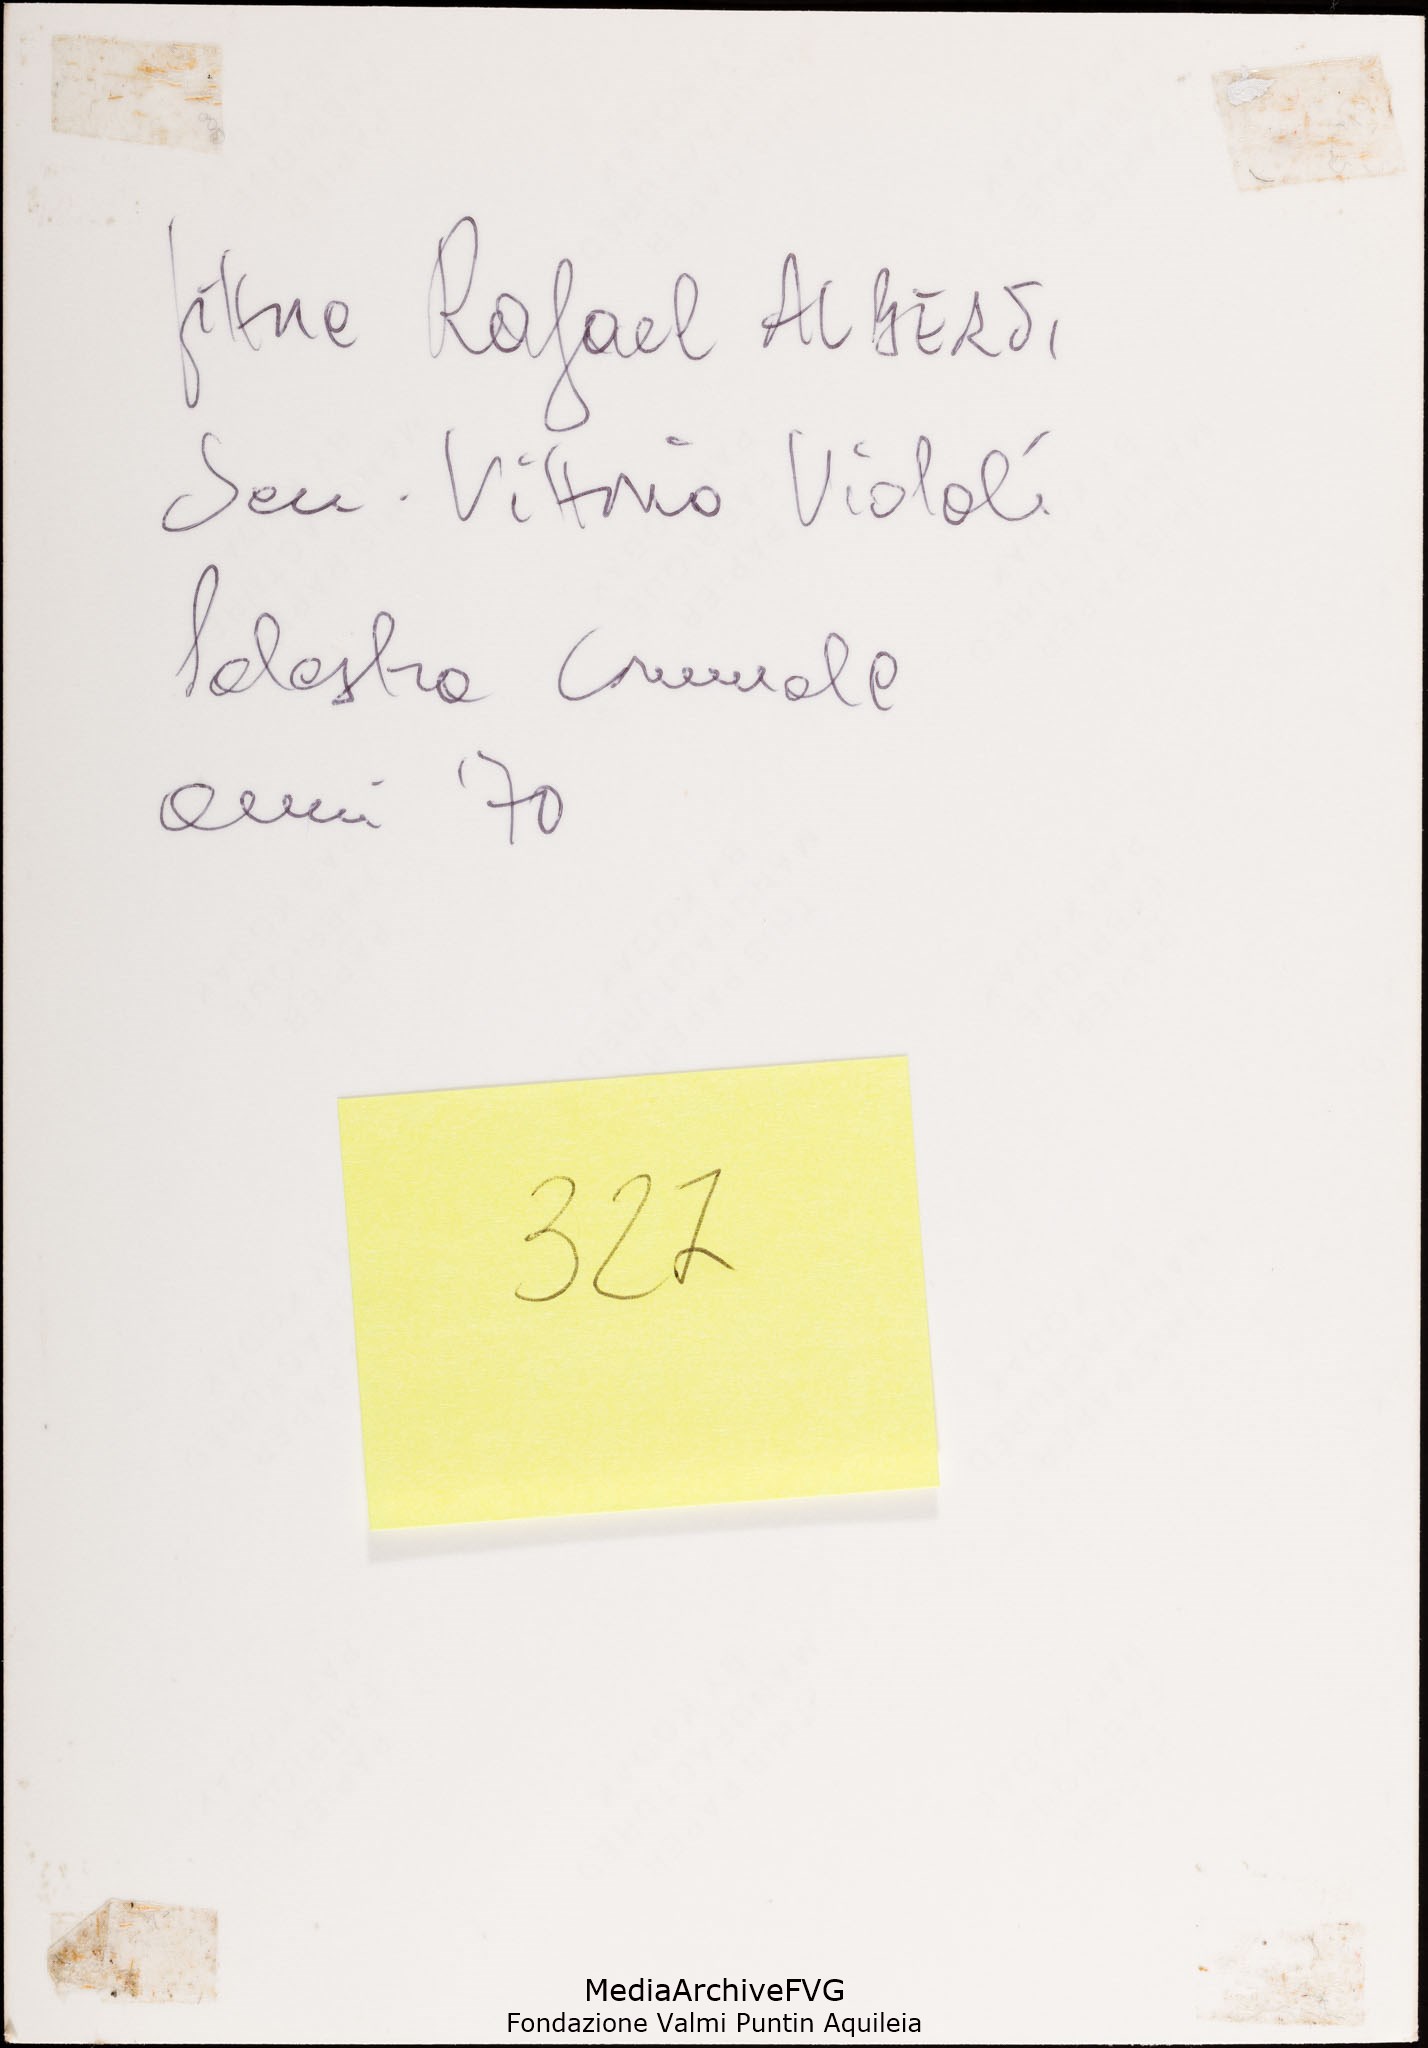 pittore Rafael ALBERTI
Sen. Vittorio Vidali
Palestra Comunale
anni '70
327
MediaArchiveFVG
Fondazione Valmi Puntin Aquileia